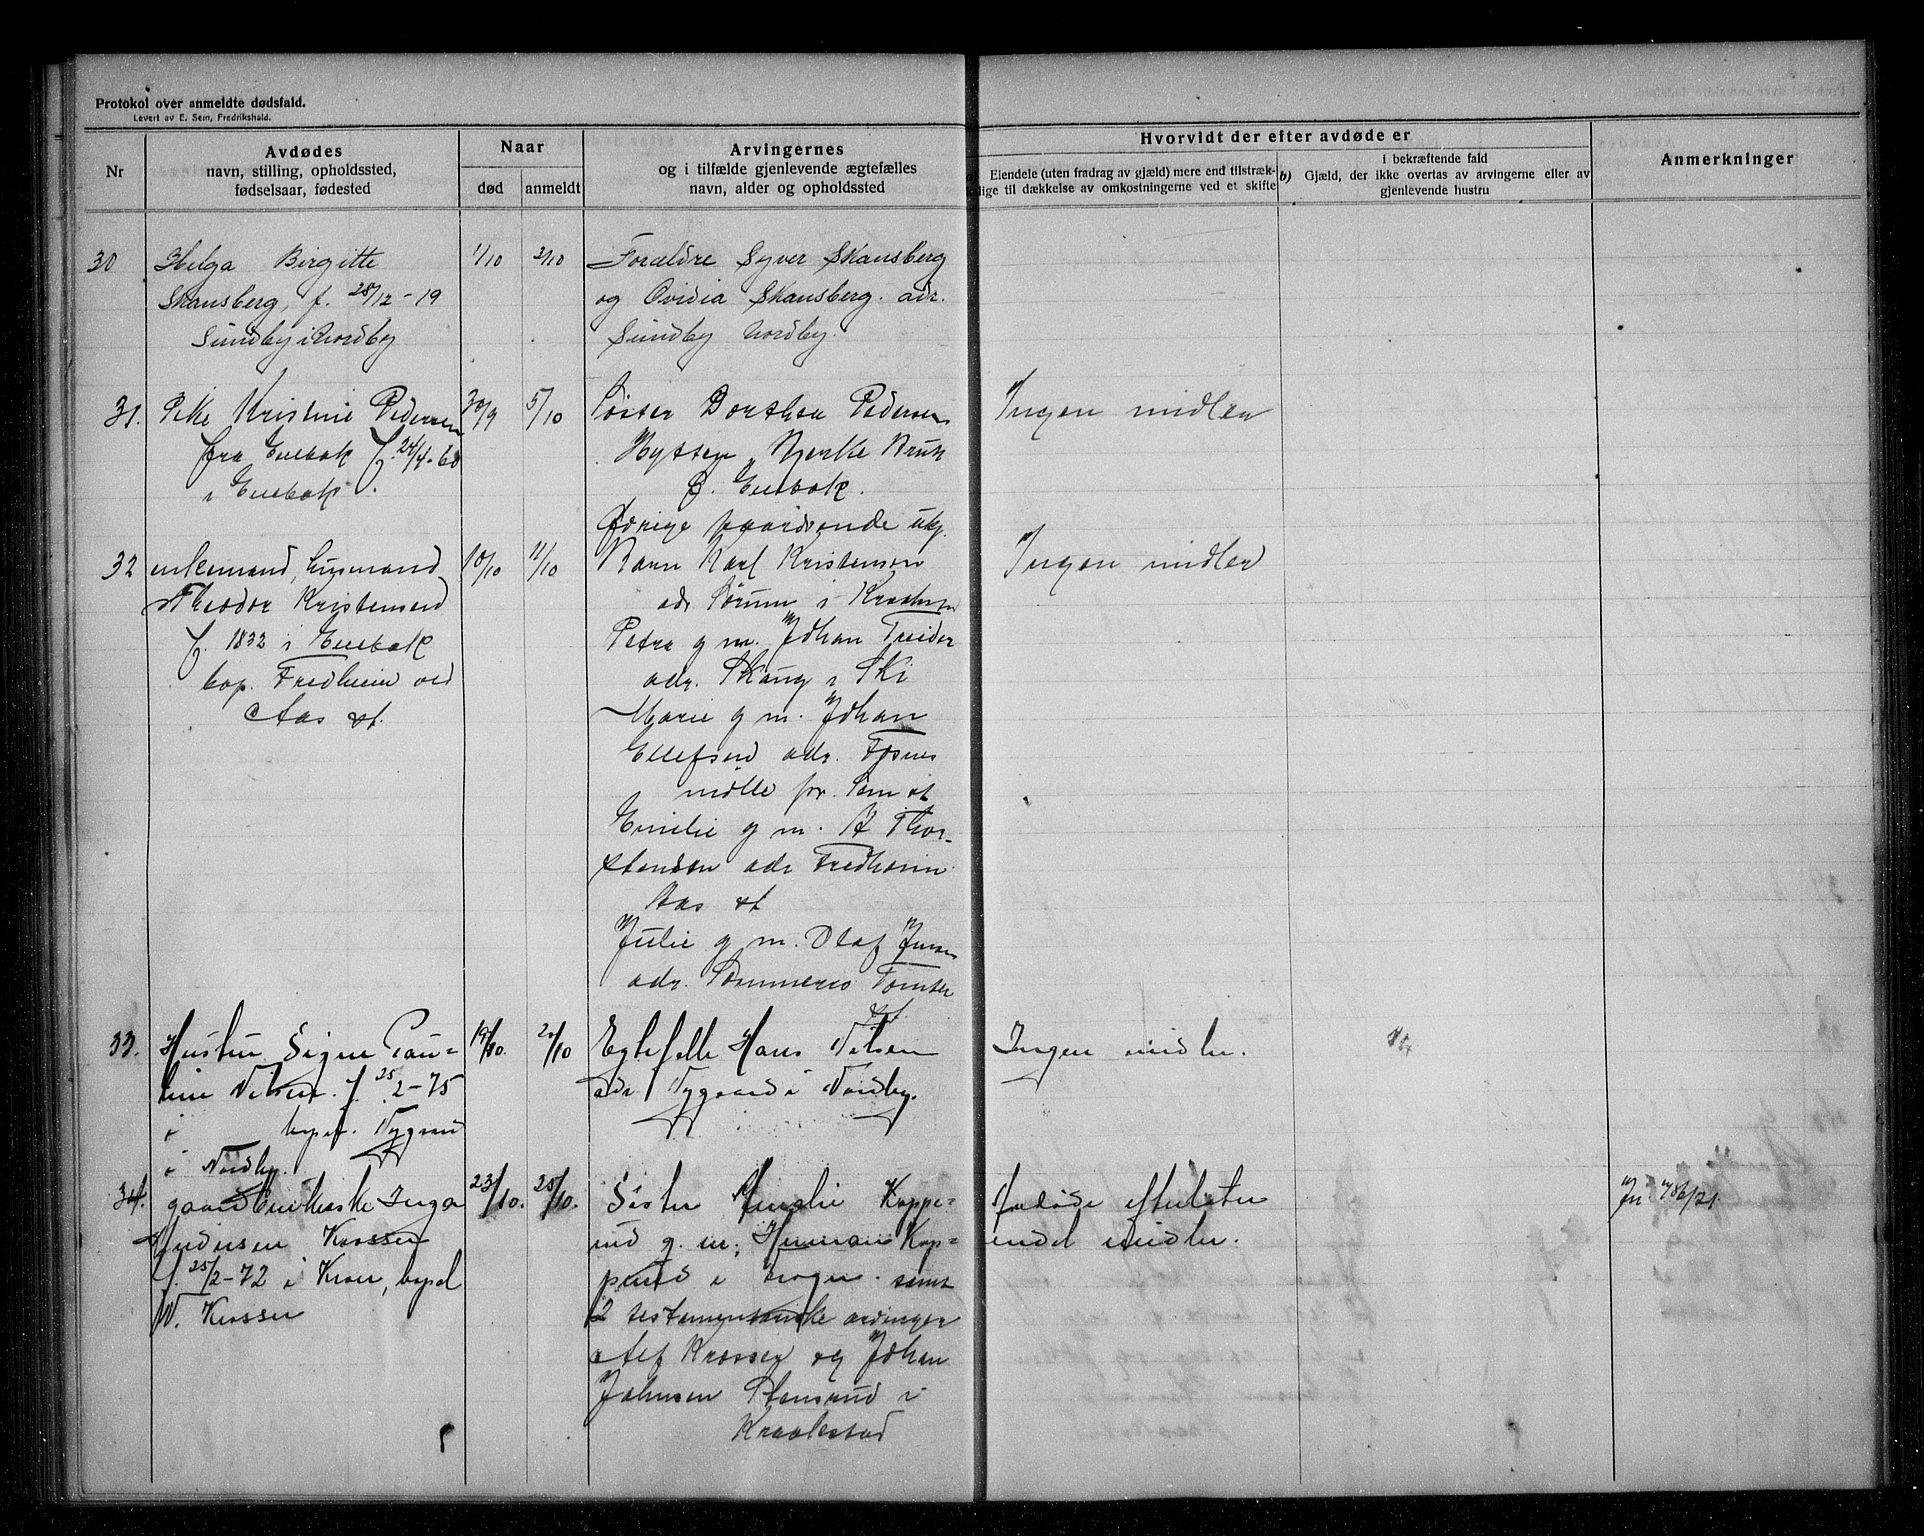 Protokol over anmeldte dødsfald.
Levert av E. Sem, Fredrikshald.
Nr
Avdødes
navn, stilling, opholdssted,
fødselsaar, fødested
Naar
død
anmeldt
Arvingernes
og i tilfælde gjenlevende ægtefælles
navn, alder og opholdssted
Hvorvidt der efter avdøde er
Eiendele (uten fradrag av gjæld) mere end tilstræk-
kelige til dækkelse av omkostningerne ved et skifte
b)
i bekræftende fald
Gjæld, der ikke overtas av arvingerne eller av
gjenlevende hustru
Anmerkninger
30
Helga Birgitte
Skansberg, f. 28/12-19
Sundby i Nordby
1/10
2/10
Forældre Syver Skansberg
og Ovidia Skansberg. adr.
Sundby Nordby.
31.
Pike Kristine Pedersen
fra Enebak f. 24/4-60
i Enebak.
30/9
5/10
Søster Dorthea Pedersen
Bruk
p. Enebak.
Øvrige paarørende ukj.
Ingen midler
32
enkemand, husmand
Theodor Kristensen
f. 1832 i Enebak
bop. Fredheim ved
Aas st.
10/10
11/10
Barn Karl Kristensen
adr Sørum i
Petra g m. Johan
adr. Skaug i Ski
Marie g m. Johan
Ellefsen adr.
mølle pr. Som st
Emilie g m. A Thor-
stensen adr Fredheim
Aas st
Julie g m. Olaf Jensen
adr. Sommerro Tomter
st.
Ingen midler
33.
Hustru Signe Pau-
line Nilsen. f. 25/2-75
i bopæl. Nygaard
i Nordby.
19/10.
20/10
Egtefelle Hans Nilsen
adr Nygaard i Nordby.
Ingen midler.
34.
gaardbrukerske Inga
Andersen Krosser
f. 25/2-72 i Kroer, bopæl
N. Krosser
23/10.
25/10.
Søster Amalie Koppe-
rud g. m. Herman Kop-
perud i samt
2 testamentariske arvinger
Alf Krosser og Johan
Johnsen Stensrud i
Kraakstad
Avdøde efterlater
endel midler.
Jn 786/21.